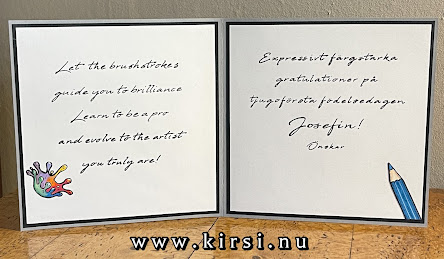 Let the brushstrokes
guide you to brilliance
Learn to be a pro
and evolve to the artist
you truly are!
Expressivt färgstarka
gratulationer på
tjugoförsta födelsedagen
Josefin!
Önskar
www.kirsi.nu